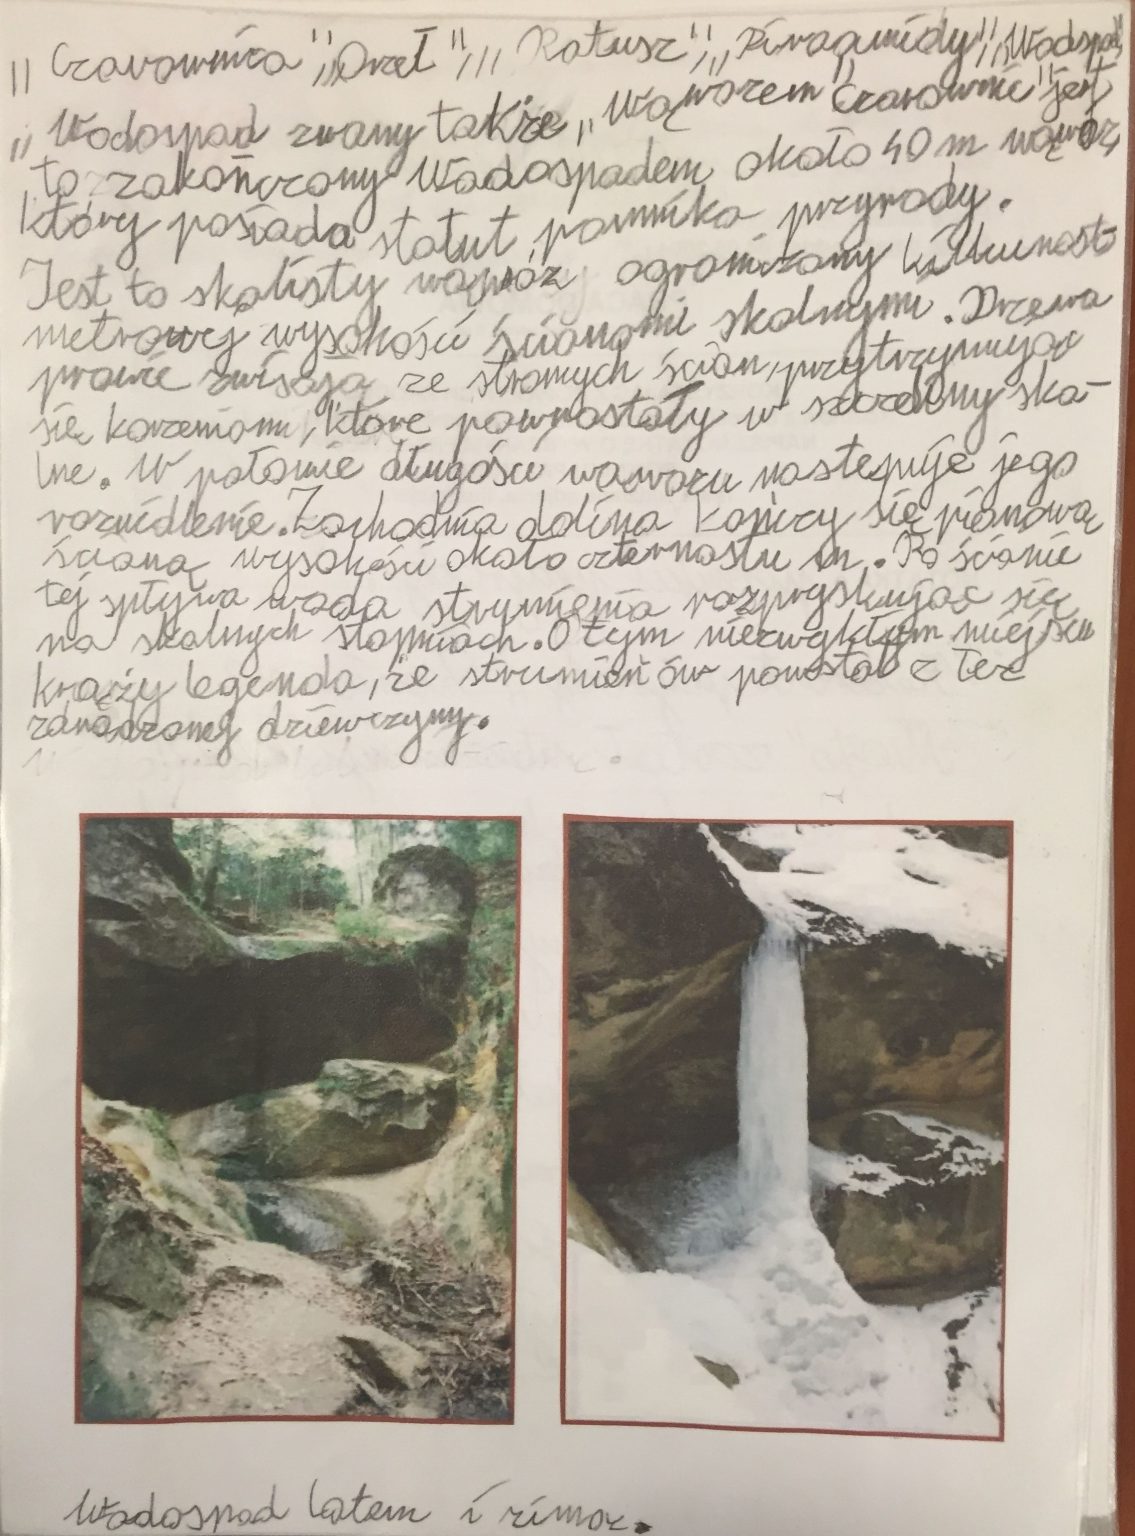 „Czarownica", „Orzeł", „Ratusz", „Piramidy", „Wodospad
„Wodospad zwany także „Wąwozem Czarownic" jest
to zakończony Wodospadem około 40 m wąwóz,
który posiada statut pomnika przyrody.
Jest to skalisty wąwóz ogroniczony kilkunasto
metrowej wysokości ścianami skalnymi. Drzewa
prawie zwisają ze stromych ścian, przytrzymując
się korzeniami, które powrastały w szczeliny ska-
lne. W połowie długości wąwozu następuje jego
rozwidlenie. Zachodnia dolina kończy się pionową
ścianą wysokości około czternastu m. Po ścianie
tej spływa woda strumienia rozpryskując się
na skalnych stopniach. O tym niezwykłym miejscu
krąży legenda, że strumień ów powstał z łez
zdradzonej dziewczyny.
Wodospad latem i zimą.